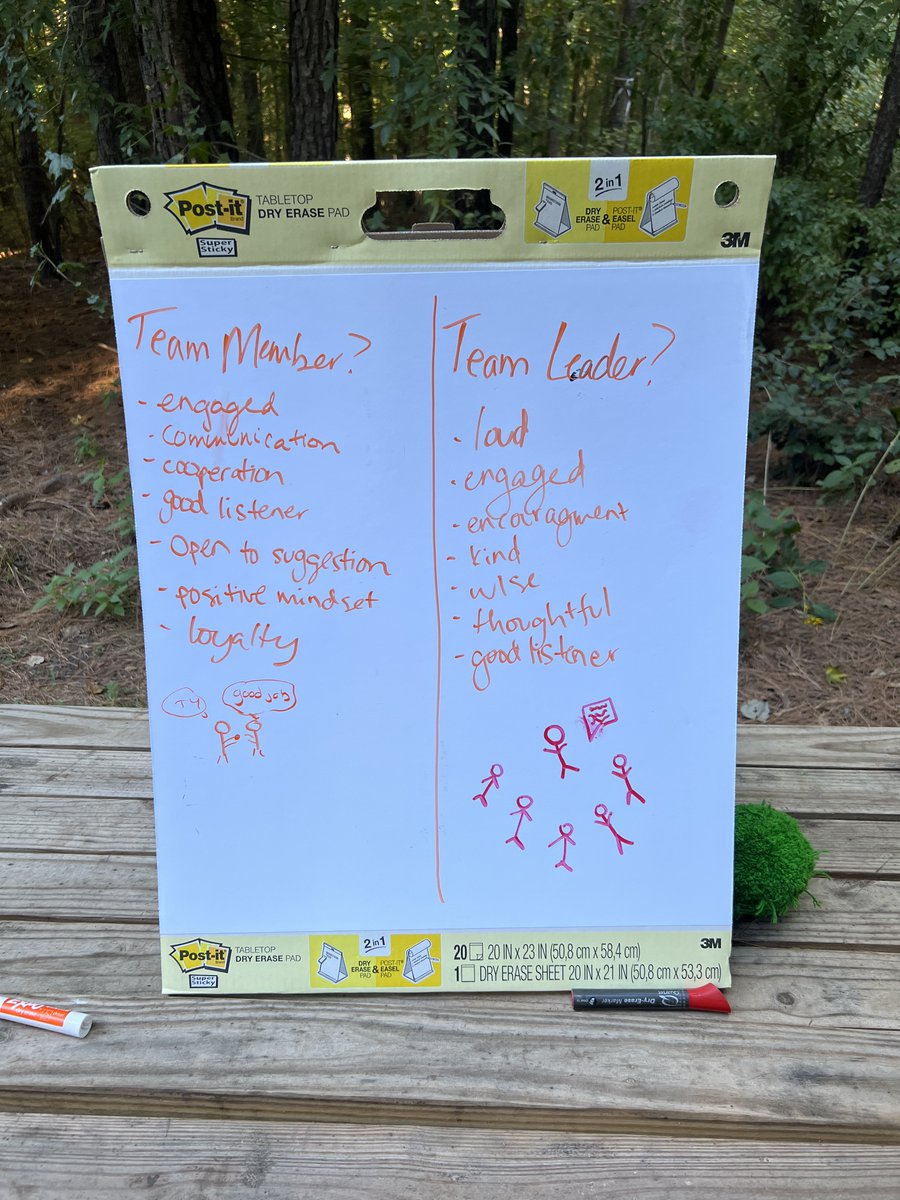 Post-it
Brand
Super
Sticky
TABLETOP
DRY ERASE PAD
2 in 1
DRY
ERASE
PAD
&
POST-IT®
EASEL
PAD
3M
Team Member?
- engaged
- communication
- cooperation
- good listener
- Open to suggestion
- positive mindset
- loyalty
TY
good job
Team Leader?
- loud
- engaged
- encouragment
- kind
- wise
- thoughtful
- good listener
Post-it
Brand
Super
Sticky
TABLETOP
DRY ERASE PAD
2 in 1
DRY
ERASE
PAD
&
POST-IT®
EASEL
PAD
20 20 IN x 23 IN (50,8 cm x 58,4 cm)
1 DRY ERASE SHEET 20 IN x 21 IN (50,8 cm x 53,3 cm)
3M
Dry-Erase Marker